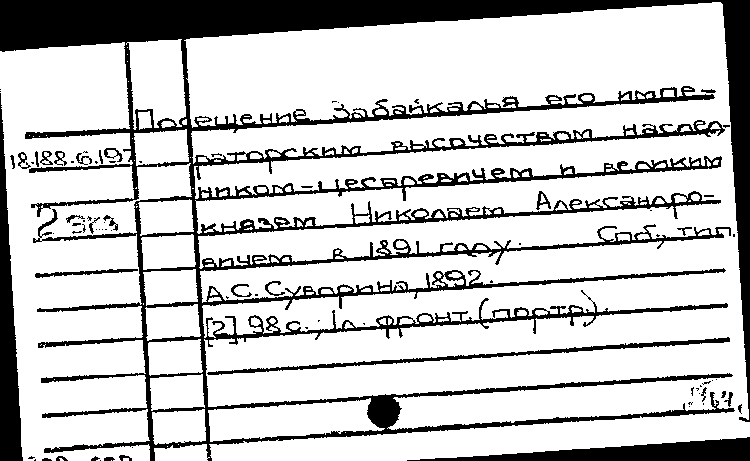 Посещение Забайкалья его импе=
18.188.6.197. раторским высочеством наслед-
ником-цесаревичем и великим
2 экз князем Николаем Александро=
вичем в 1891 году. Спб., тип.
А.С. Суворина, 1892.
[2], 98 с.; 1 л. фронт. (портр.).